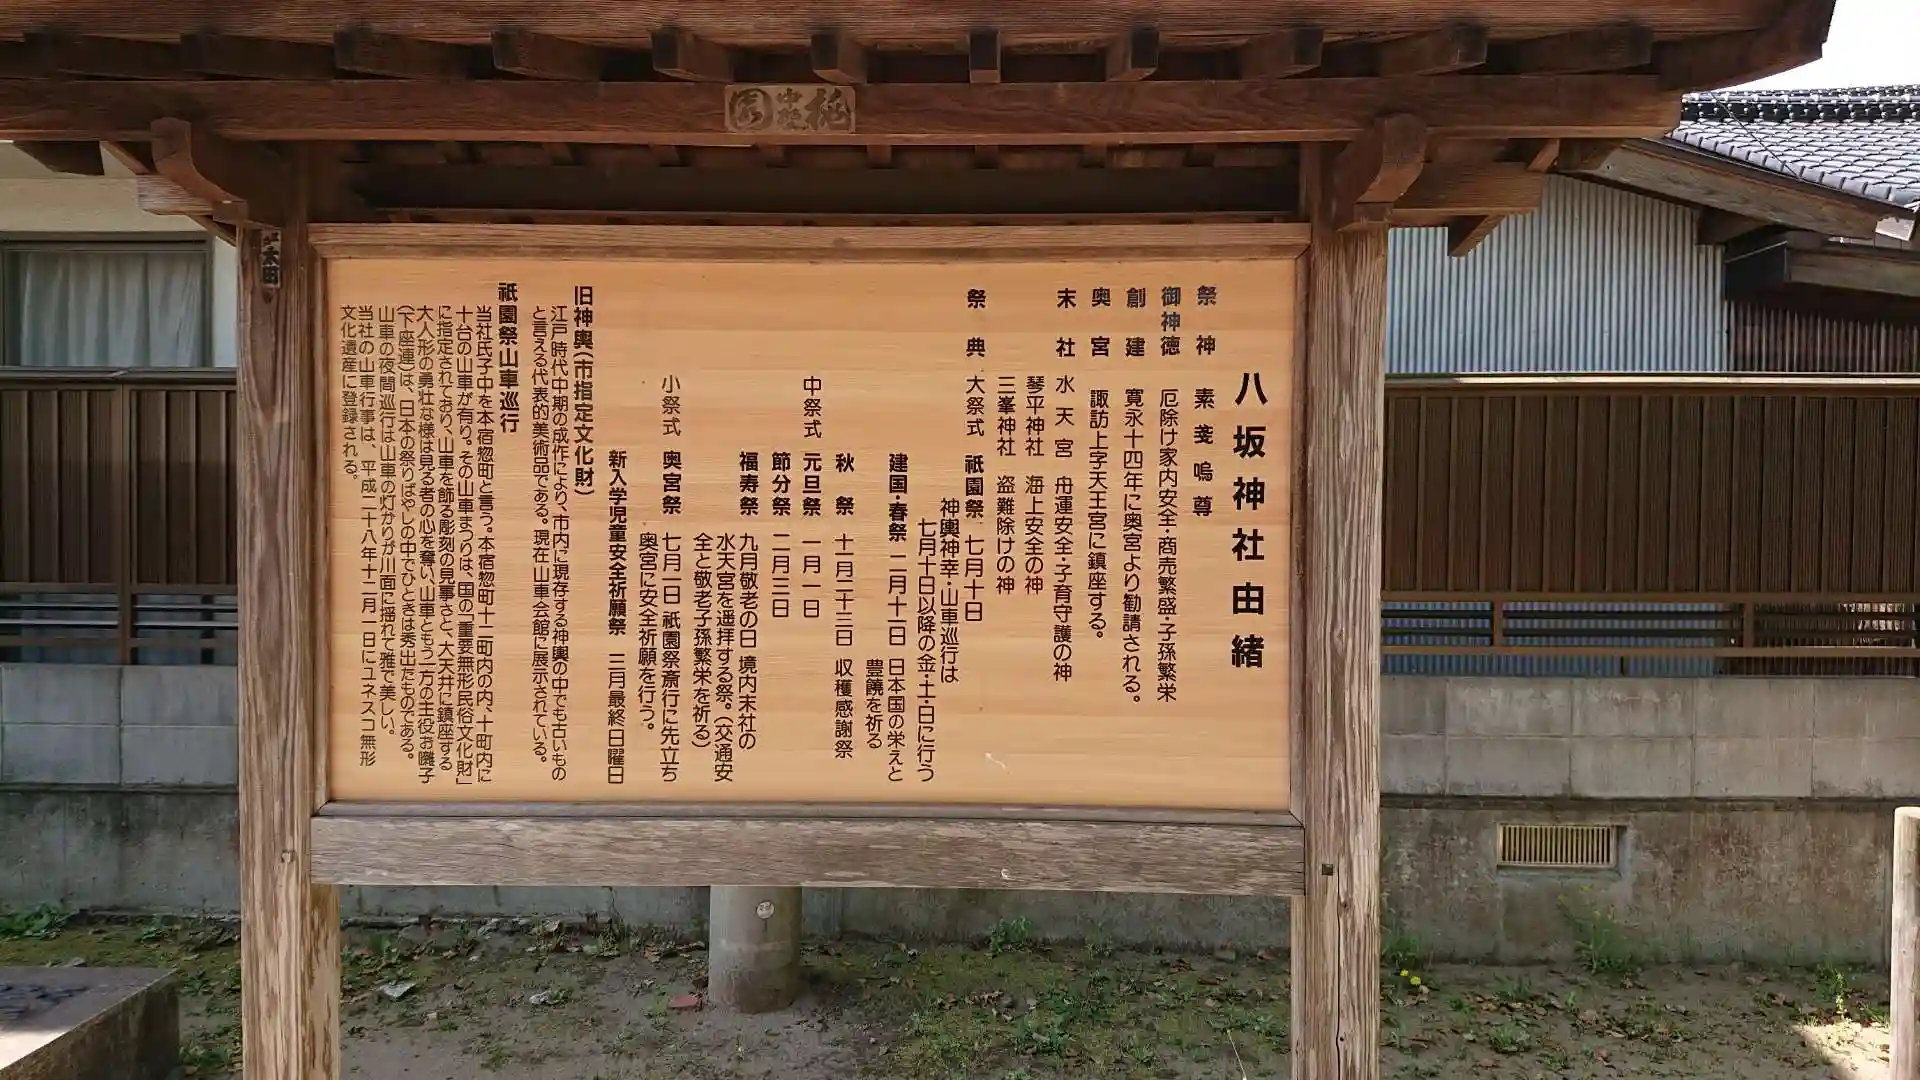 八坂神社由緒
祭神 素戔嗚尊
御神徳 厄除け家内安全・商売繁盛・子孫繁栄
創建 寛永十四年に奥宮より勧請される。
奥宮 諏訪上字天王宮に鎮座する。
末社 水天宮 舟運安全・子育守護の神
琴平神社 海上安全の神
三峯神社 盗難除けの神
祭典 大祭式 祇園祭 七月十日
神輿神幸・山車巡行は
七月十日以降の金・土・日に行う
建国・春祭 二月十一日 日本国の栄えと
豊饒を祈る
秋祭 十一月二十三日 収穫感謝祭
中祭式 元旦祭 一月一日
節分祭 二月三日
福寿祭 九月敬老の日 境内末社の
水天宮を遥拝する祭。(交通安
全と敬老子孫繁栄を祈る)
小祭式 奥宮祭 七月一日 祇園祭斎行に先立ち
奥宮に安全祈願を行う。
新入学児童安全祈願祭 三月最終日曜日
旧神輿(市指定文化財)
江戸時代中期の成作により、市内に現存する神輿の中でも古いもの
と言える代表的美術品である。現在山車会館に展示されている。
祇園祭山車巡行
当社氏子中を本宿惣町と言う。本宿惣町十二町内の内、十町内に
十台の山車が有り。その山車まつりは、国の「重要無形民俗文化財」
に指定されており、山車を飾る彫刻の見事さと、大天井に鎮座する
大人形の勇壮な様は見る者の心を奪い、山車ともう一方の主役お囃子
(下座連)は、日本の祭りばやしの中でひときは秀出たものである。
山車の夜間巡行は山車の灯かりが川面に揺れて雅で美しい。
当社の山車行事は、平成二十八年十二月一日にユネスコ無形
文化遺産に登録される。